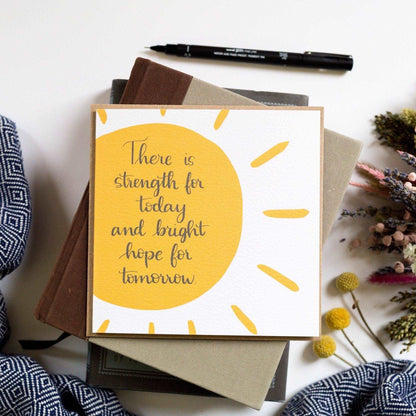 There is
strength for
today
and bright
hope for
tomorrow